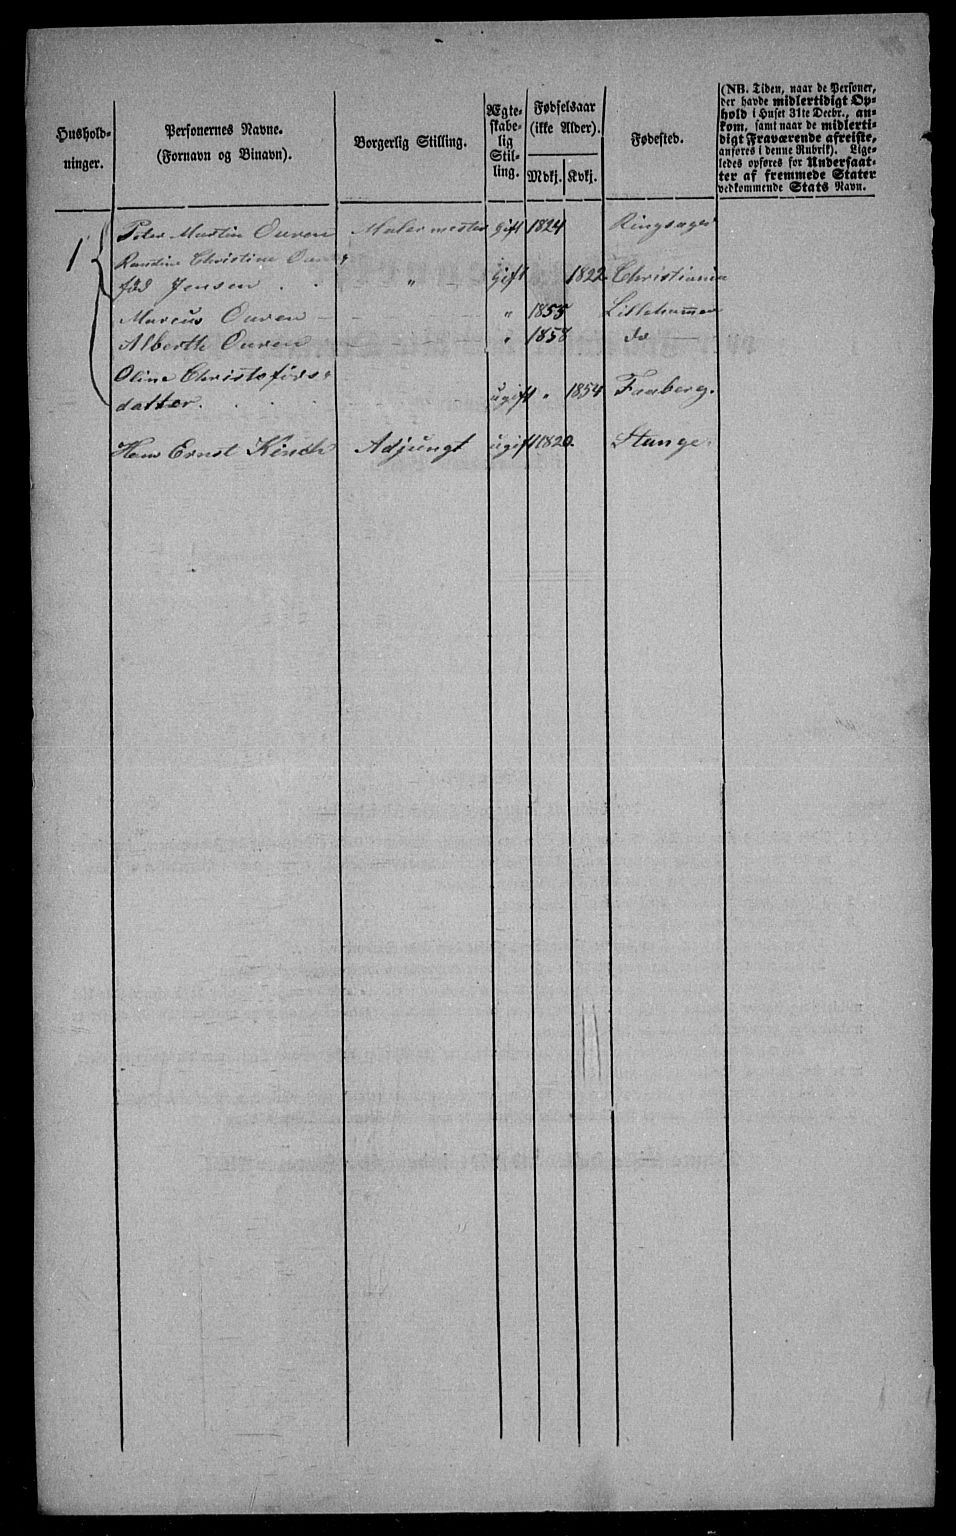 Hushold-
ninger.
Personernes Navne.
(Fornavn og Binavn).
Borgerlig Stilling.
Ægte-
skabe-
lig
Stil-
ling.
Fødselsaar
(ikke Alder).
Mdkj. Kvkj.
Fødested.
(NB. Tiden, naar de Personer,
der havde midlertidigt Op-
hold i Huset 31te Decbr., an-
kom, samt naar de midlerti-
digt Fraværende afreiste,
anføres i denne Rubrik). Lige-
ledes opføres for Undersaat-
ter af fremmede Stater
vedkommende Stats Navn.
1 Peter Martin Ouren Malermester gift 1824 Ringsager
Randine Christine Ouren
fød Jensen . . " gift 1822 Christiania
Marcus Ouren - " 1855 Lillehammer
Alberth Ouren " 1858 do
Oline Christofers-
datter. . . . ugift " 1854 Faaberg.
Hans Ernst Kinch Adjungt ugift 1820 Stange.